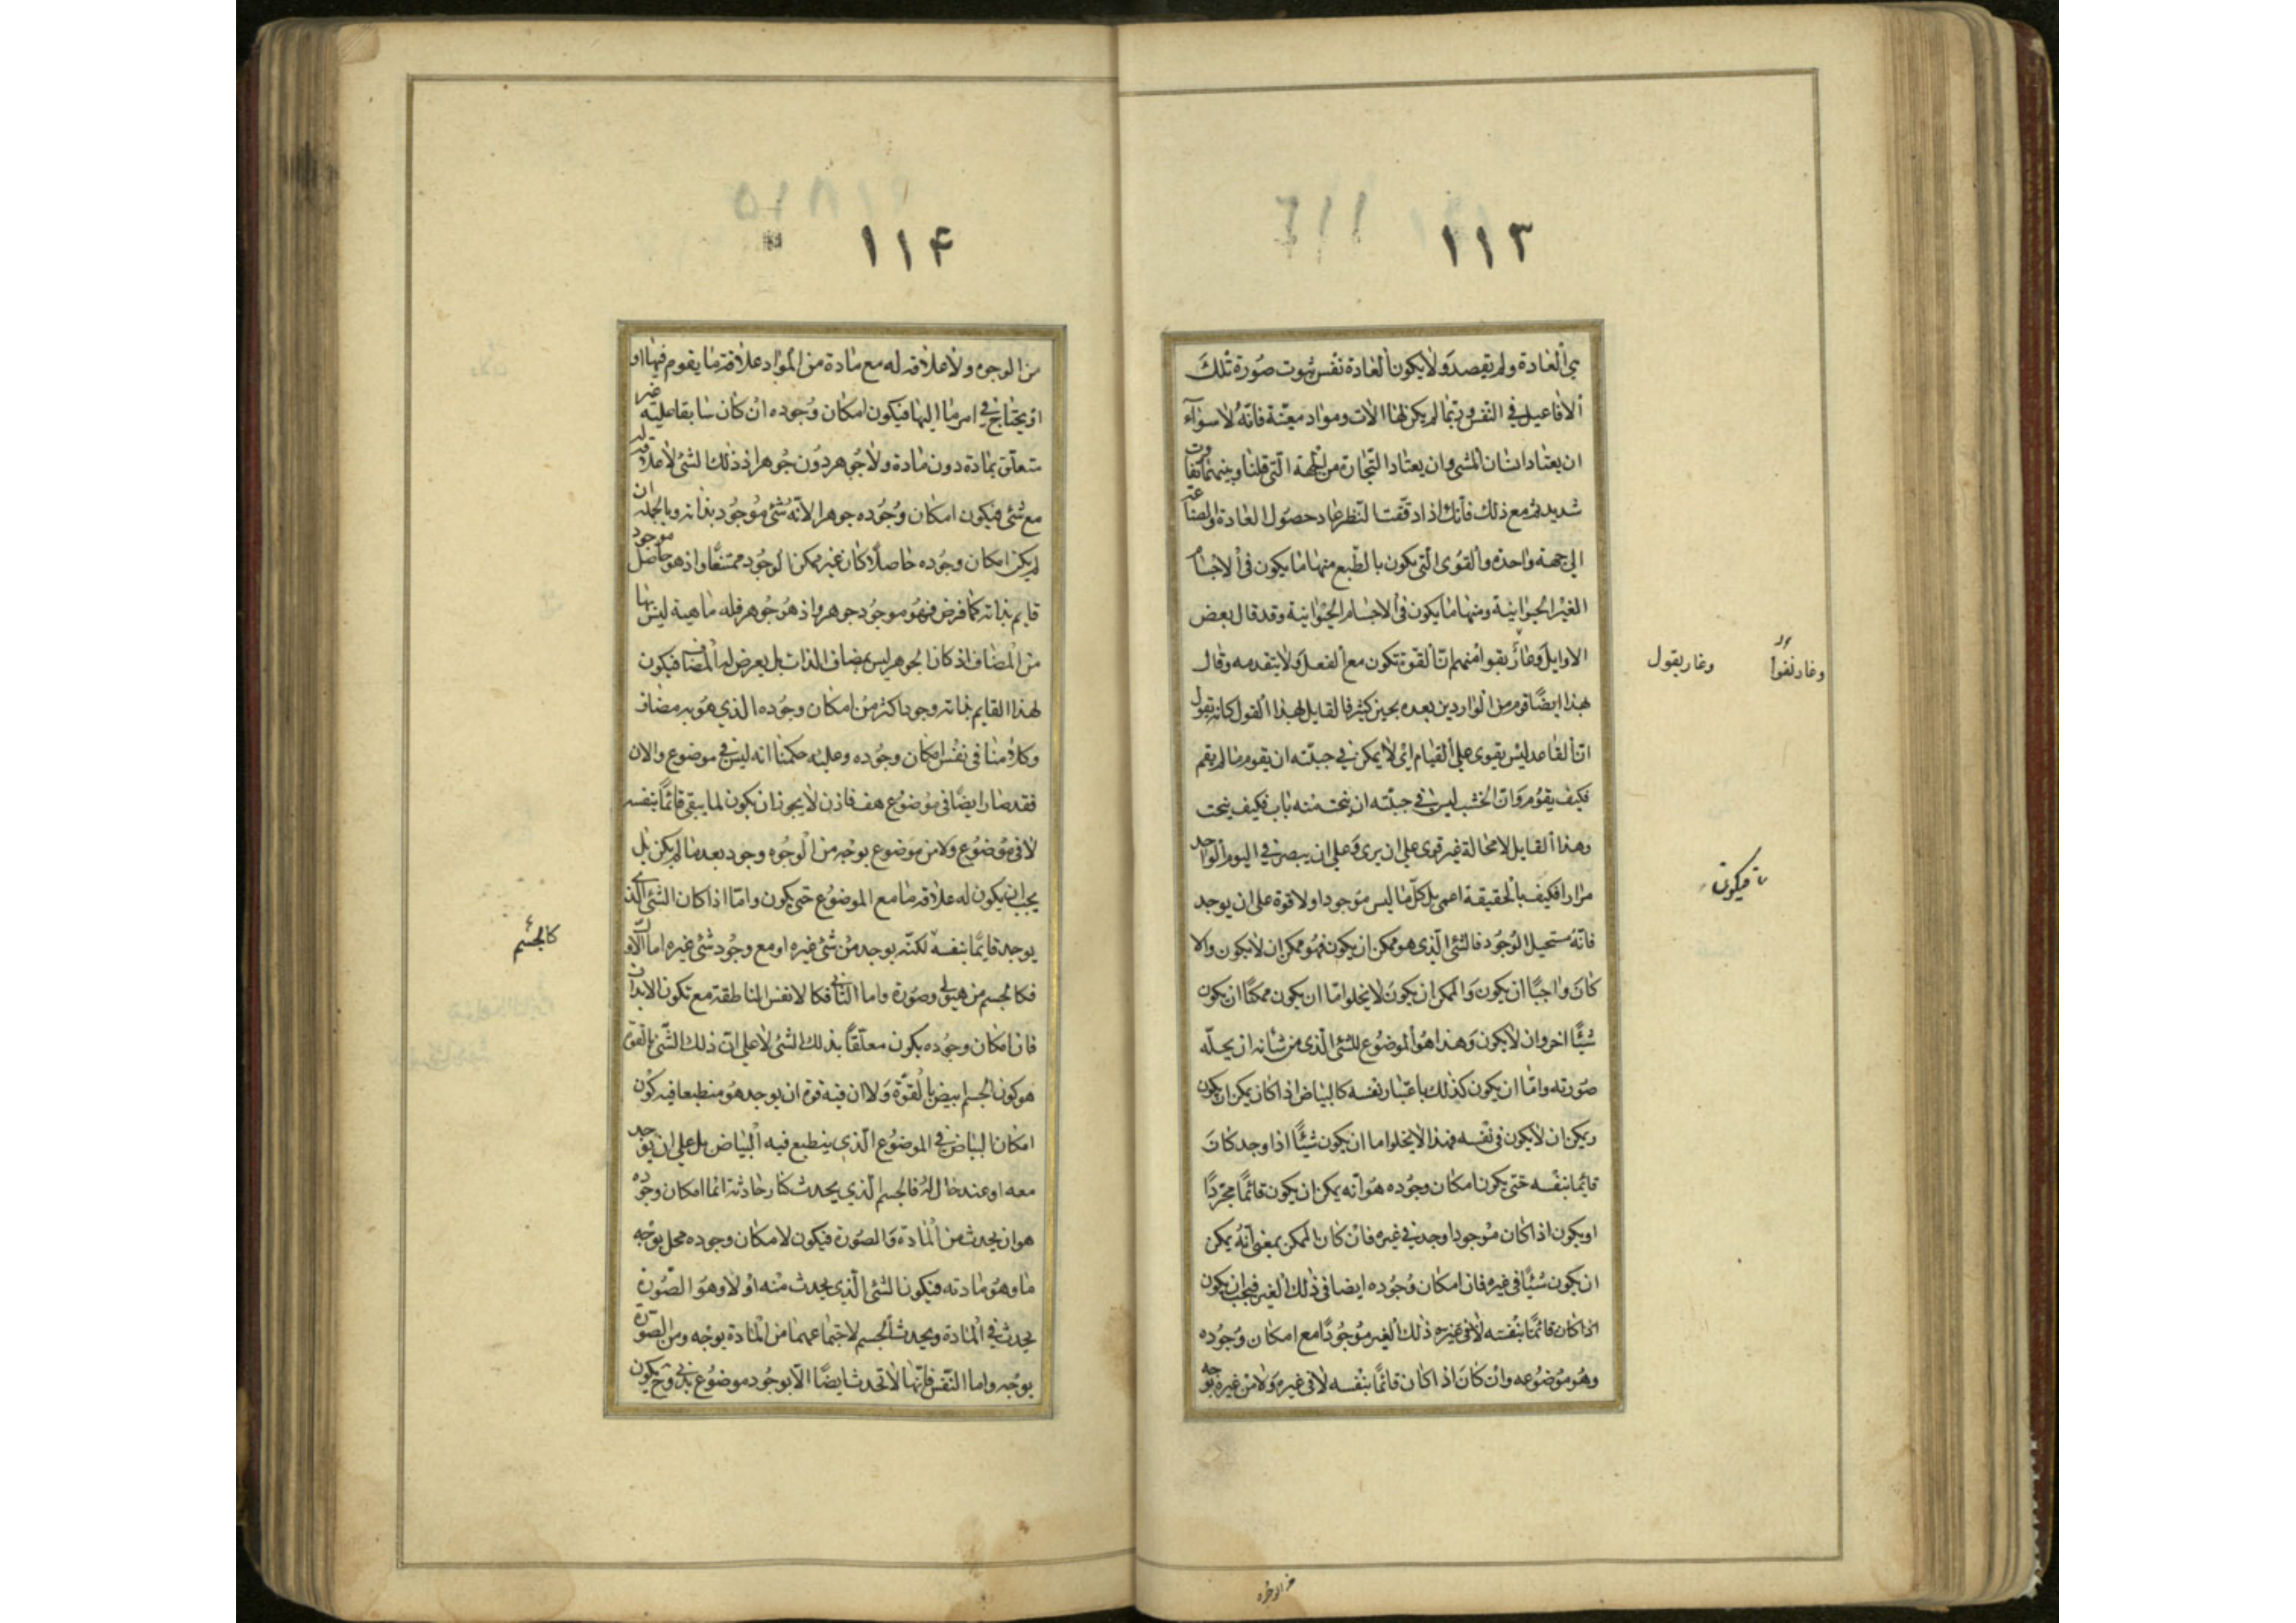 ١١٣
في العادة ولم يقصد ولا يكون العادة نفس ثبوت صورة تلك
الافاعيل في النفس وربما لم يكن لها الات ومواد معينة فانه لا سواء
ان يعتاد انسان المشي وان يعتاد التجارة من الجهة التي قلنا وبينهما تفاوت
شديد ثم مع ذلك فانك اذا دققت النظر عاد حصول العادة والصناعة
الى جهة واحدة والقوى التي يكون بالطبع منها ما يكون في الاجسام
الغير الحيوانية ومنها ما يكون في الاجسام الحيوانية وقد قال بعض
الاوايل وغاريقوا منهم ان القوة تكون مع الفعل ولا يتقدمه وقال
بهذا ايضا قوم من الواردين بعده بحين كثير فالقايل لهذا القول كانه يقول
ان القاعد ليس يقوى على القيام اي لا يمكن في جبلته ان يقوم ما لم يقم
فكيف يقوم وان الخشب ليس في جبلته ان ينحت منه باب فكيف ينحت
وهذا القايل لا محالة غير قوي على ان يرى وعلى ان يبصر في اليوم الواحد
مرارا فكيف بالحقيقة اعمى بل كل ما ليس موجودا ولا قوة على ان يوجد
فانه مستحيل الوجود فالشئ الذي هو ممكن ان يكون فهو ممكن ان لا يكون والا
كان واجبا ان يكون والممكن ان يكون لا يخلوا اما ان يكون ممكنا ان يكون
شيئا اخر وان لا يكون وهذا هو الموضوع للشئ الذي من شانه ان يحله
صورته واما ان يكون كذلك باعتبار نفسه كالبياض اذا كان يمكن ان يكون
ويمكن ان لا يكون في نفسه فهذا لا يخلوا اما ان يكون شيئا اذا وجد كان
قائما بنفسه حتى يكون امكان وجوده هو انه يمكن ان يكون قائما مجردا
او يكون اذا كان موجودا وجد في غيره فان كان الممكن بمعنى انه يمكن
ان يكون شيئا في غيره فان امكان وجوده ايضا في ذلك الغير فيجب ان يكون
اذا كان قائما بنفسه لا في غيره ذلك الغير موجودا مع امكان وجوده
وهو موضوعه وان كان اذا كان قائما بنفسه لا في غيره ولا من غيره بوجه
وغاريقول
وغاريقوا
فيكون
من الوجوه
١١۴
من الوجوه ولا علاقة له مع مادة من المواد علاقة ما يقوم فيها او
او يحتاج في امر ما اليها فيكون امكان وجوده ان كان سابقا عليه غير
متعلق بمادة دون مادة ولا جوهر دون جوهر اذ ذلك الشئ لا علاقة له
مع شئ فيكون امكان وجوده جوهرا لانه شئ موجود بذاته وبالجملة ان
لم يكن امكان وجوده حاصلا كان غير ممكن الوجود ممتنعا واذ هو حاصل موجود
قايم بذاته كما فرض فهو موجود جوهر واذ هو جوهر فله ماهية ليس بها
من المضاف اذ كان الجوهر ليس بمضاف الذات بل يعرض له المضاف فيكون
لهذا القايم بذاته وجود اكثر من امكان وجوده الذي هو به مضاف
وكلامنا في نفس امكان وجوده وعليه حكمنا انه ليس في موضوع والان
فقد صار ايضا في موضوع هف فاذن لا يجوز ان يكون لما يبقى قائما بنفسه
لا في موضوع ولا من موضوع بوجه من الوجوه وجود بعد ما لم يكن بل
يجب ان يكون له علاقة ما مع الموضوع حتى يكون واما اذا كان الشئ الذي
يوجد قايما بنفسه لكنه يوجد من شئ غيره او مع وجود شئ غيره اما الاول
فكالجسم من هيولى وصورة واما الثاني فكالانفس الناطقة مع تكون الابدان
فان امكان وجوده يكون معلقا بذلك الشئ لا على ان ذلك الشئ بالقوة
هو كون الجسم ابيض بالقوة ولا ان فيه قوة ان يوجد هو منطبعا فيه كون
امكان البياض في الموضوع الذي ينطبع فيه البياض بل على ان يوجد
معه او عند حال له فالجسم الذي يحدث كنار حادثة انما امكان وجوده
هو ان يحدث من المادة والصورة فيكون لامكان وجوده محل بوجه
ما وهو مادته فيكون الشئ الذي يحدث منه اولا وهو الصورة
يحدث في المادة ويحدث الجسم لاجتماعهما من المادة بوجه ومن الصورة
بوجه واما النفس فانها لا تحدث ايضا الا بوجود موضوع بدني وح يكون
كالجسم